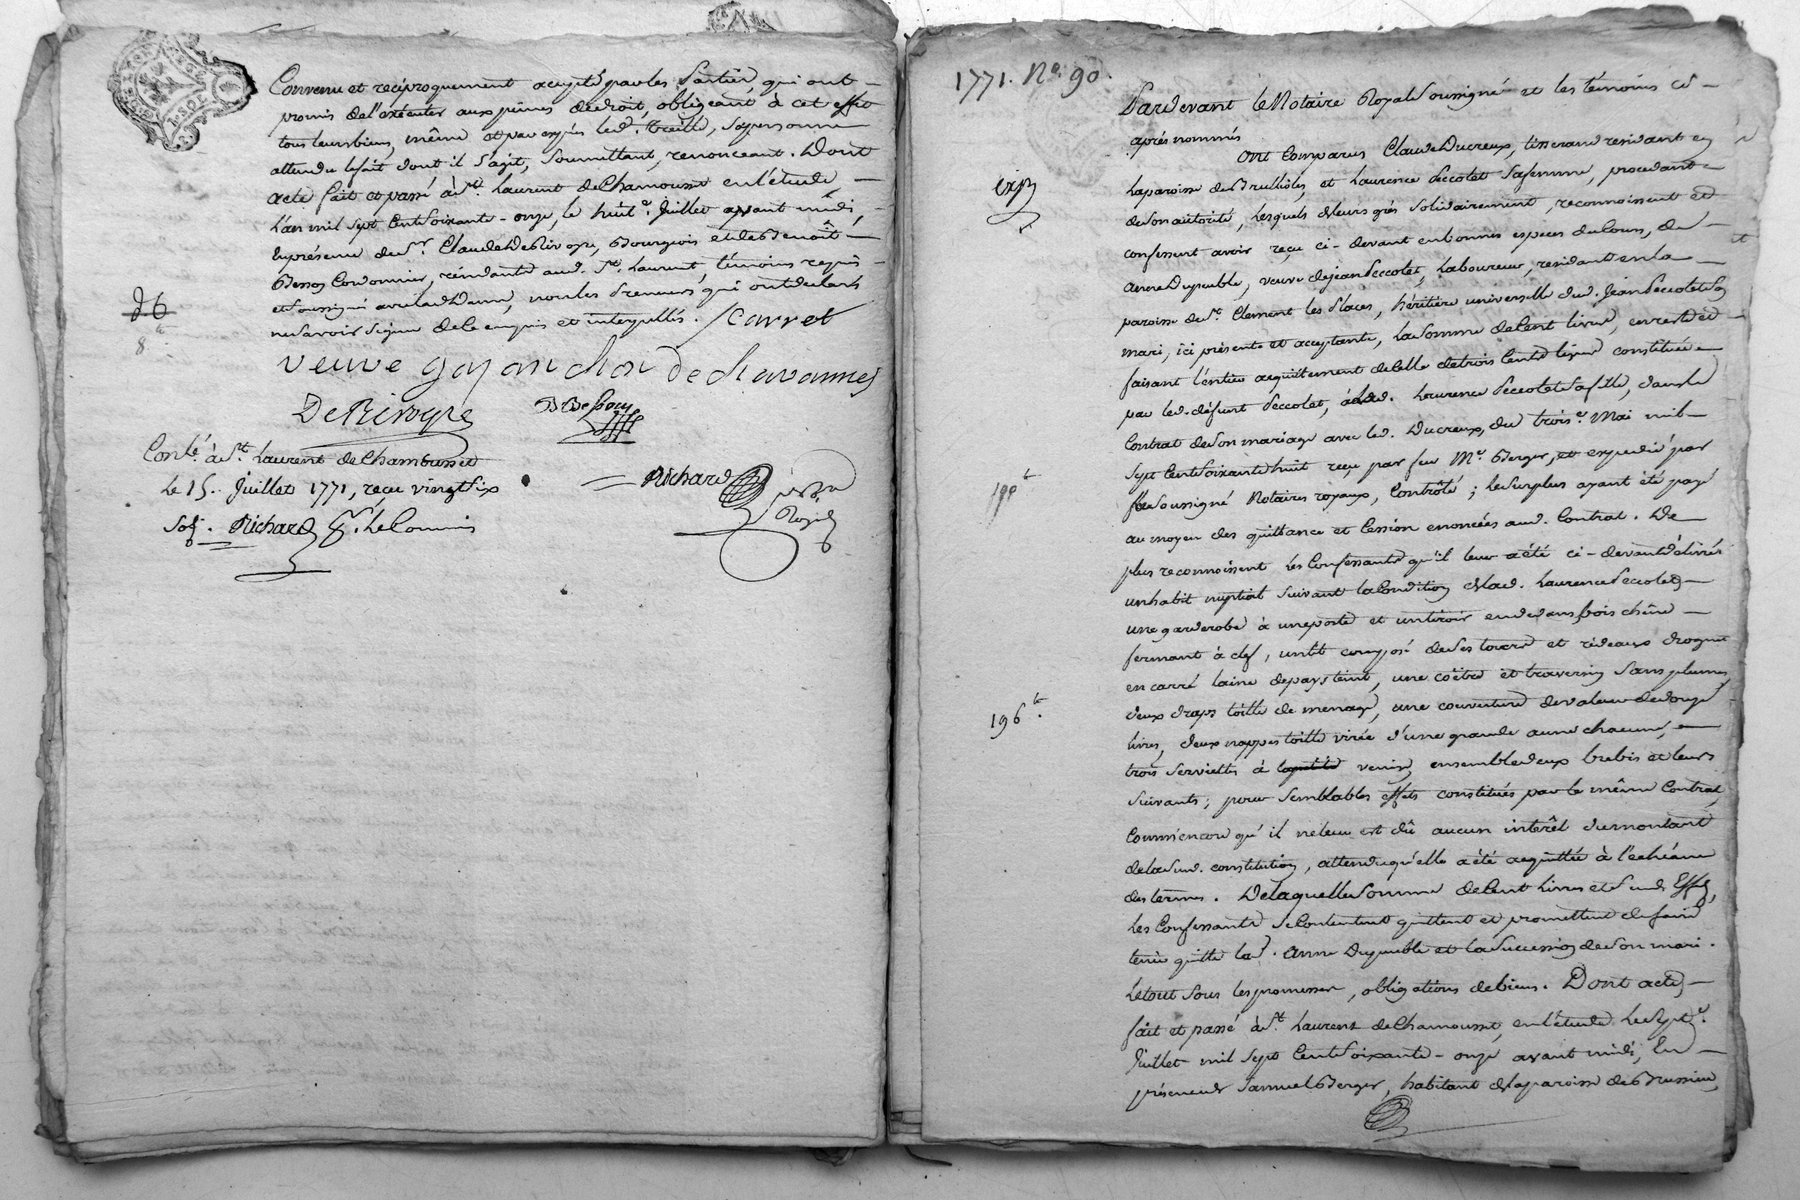 Convenu et reciproquement accepté par les Parties, qui ont
promis de l'exécuter aux peines de droit, obligeant à cet effet
tous leurs biens, même et par exprès led. Treille, sa personne
attendu le fait dont il s'agit, Soumettant, renonceant. Dont
acte fait et passé à St. Laurent de Chamousset en l'étude,
L'an mil sept Cent Soixante-onze, le huit.e Juillet avant midi,
En présence de Sr. Claude DeRivoyre, Bourgeois et de Benoît
Besson Cordonnier, résidants aud. St. Laurent, témoins requis
et Soussignés avec lad. Dame, non les Preneurs qui ont déclaré
ne Savoir Signer de ce enquis et interpellés. / Carret
veuve gayan chol de chavannes
DeRivoyre B Besson
Con.lé à St. Laurent de Chamousset
Le 15. Juillet 1771, reçu vingt six
Sols. Richard Richard
d. 6
8
1771. No. 90.
Pardevant le Notaire Royal Soussigné et les témoins ci-
après nommés
Ont Comparus Claude Ducreux, tisserand residant en
la paroisse de Brullioles, et Laurence Peccolet Sa femme, procedant
de Son autorité, Lesquels de leurs grés Solidairement, reconnoissent et
confessent avoir reçu ci-devant en bonnes especes du Cours, de
anne Dupeuble, veuve de jean Peccolet, Laboureur, residante en la
paroisse de St. Clement les Places, héritière universelle dud. Jean Peccolet Son
mari, ici présente et acceptante, La Somme de Cent livres, en reste et
faisant l'entier acquittement de celle de trois Cents livres constituée
par led. défunt Peccolet, à lad. Laurence Peccolet Sa fille, dans le
Contrat de Son mariage avec led. Ducreux, du trois.e Mai mil
Sept Cent Soixante huit reçu par feu Me. Berger, et expedié par
le Soussigné Notaires royaux, Contrôlé ; le Surplus ayant été payé
au moyen des quittance et Cession enoncées aud. Contrat. De
plus reconnoissent les Confessants qu'il leur a été ci-devant délivré
un habit nuptial Suivant la Condition de lad. Laurence Peccolet,
une garderobe à une porte et un tiroir en dedans bois chêne
fermant à clef, un lit composé de Ses tours et rideaux drogue
en carré laine de pays teint, une coëtre et traversin Sans plumes,
deux draps toille de menage, une couverture de valeur de douze
livres, deux nappes toille virée d'une grande aune chacune,
trois Serviettes à venise, ensemble deux brebis et leurs
Suivants ; pour Semblables effets constitués par le même Contrat,
Comm'encore qu'il ne leur est dû aucun intérêt du montant
de la Sud. constitution, attendu qu'elle a été acquittée à l'échéance
des termes. De laquelle Somme de Cent Livres et Sud. Effets,
Les Confessants Se Contentent quittent et promettent de faire
tenir quitte lad. Anne Dupeuble et la Succession de Son mari.
Le tout Sous les promesses, obligations de biens. Dont acte,
fait et passé à St. Laurent de Chamousset, en l'étude Le Sept.e
Juillet mil Sept Cent Soixante-onze avant midi, En
présence de Samuel Berger, habitant de la paroisse de Brussieu,
exp.
100 lt.
196 lt.